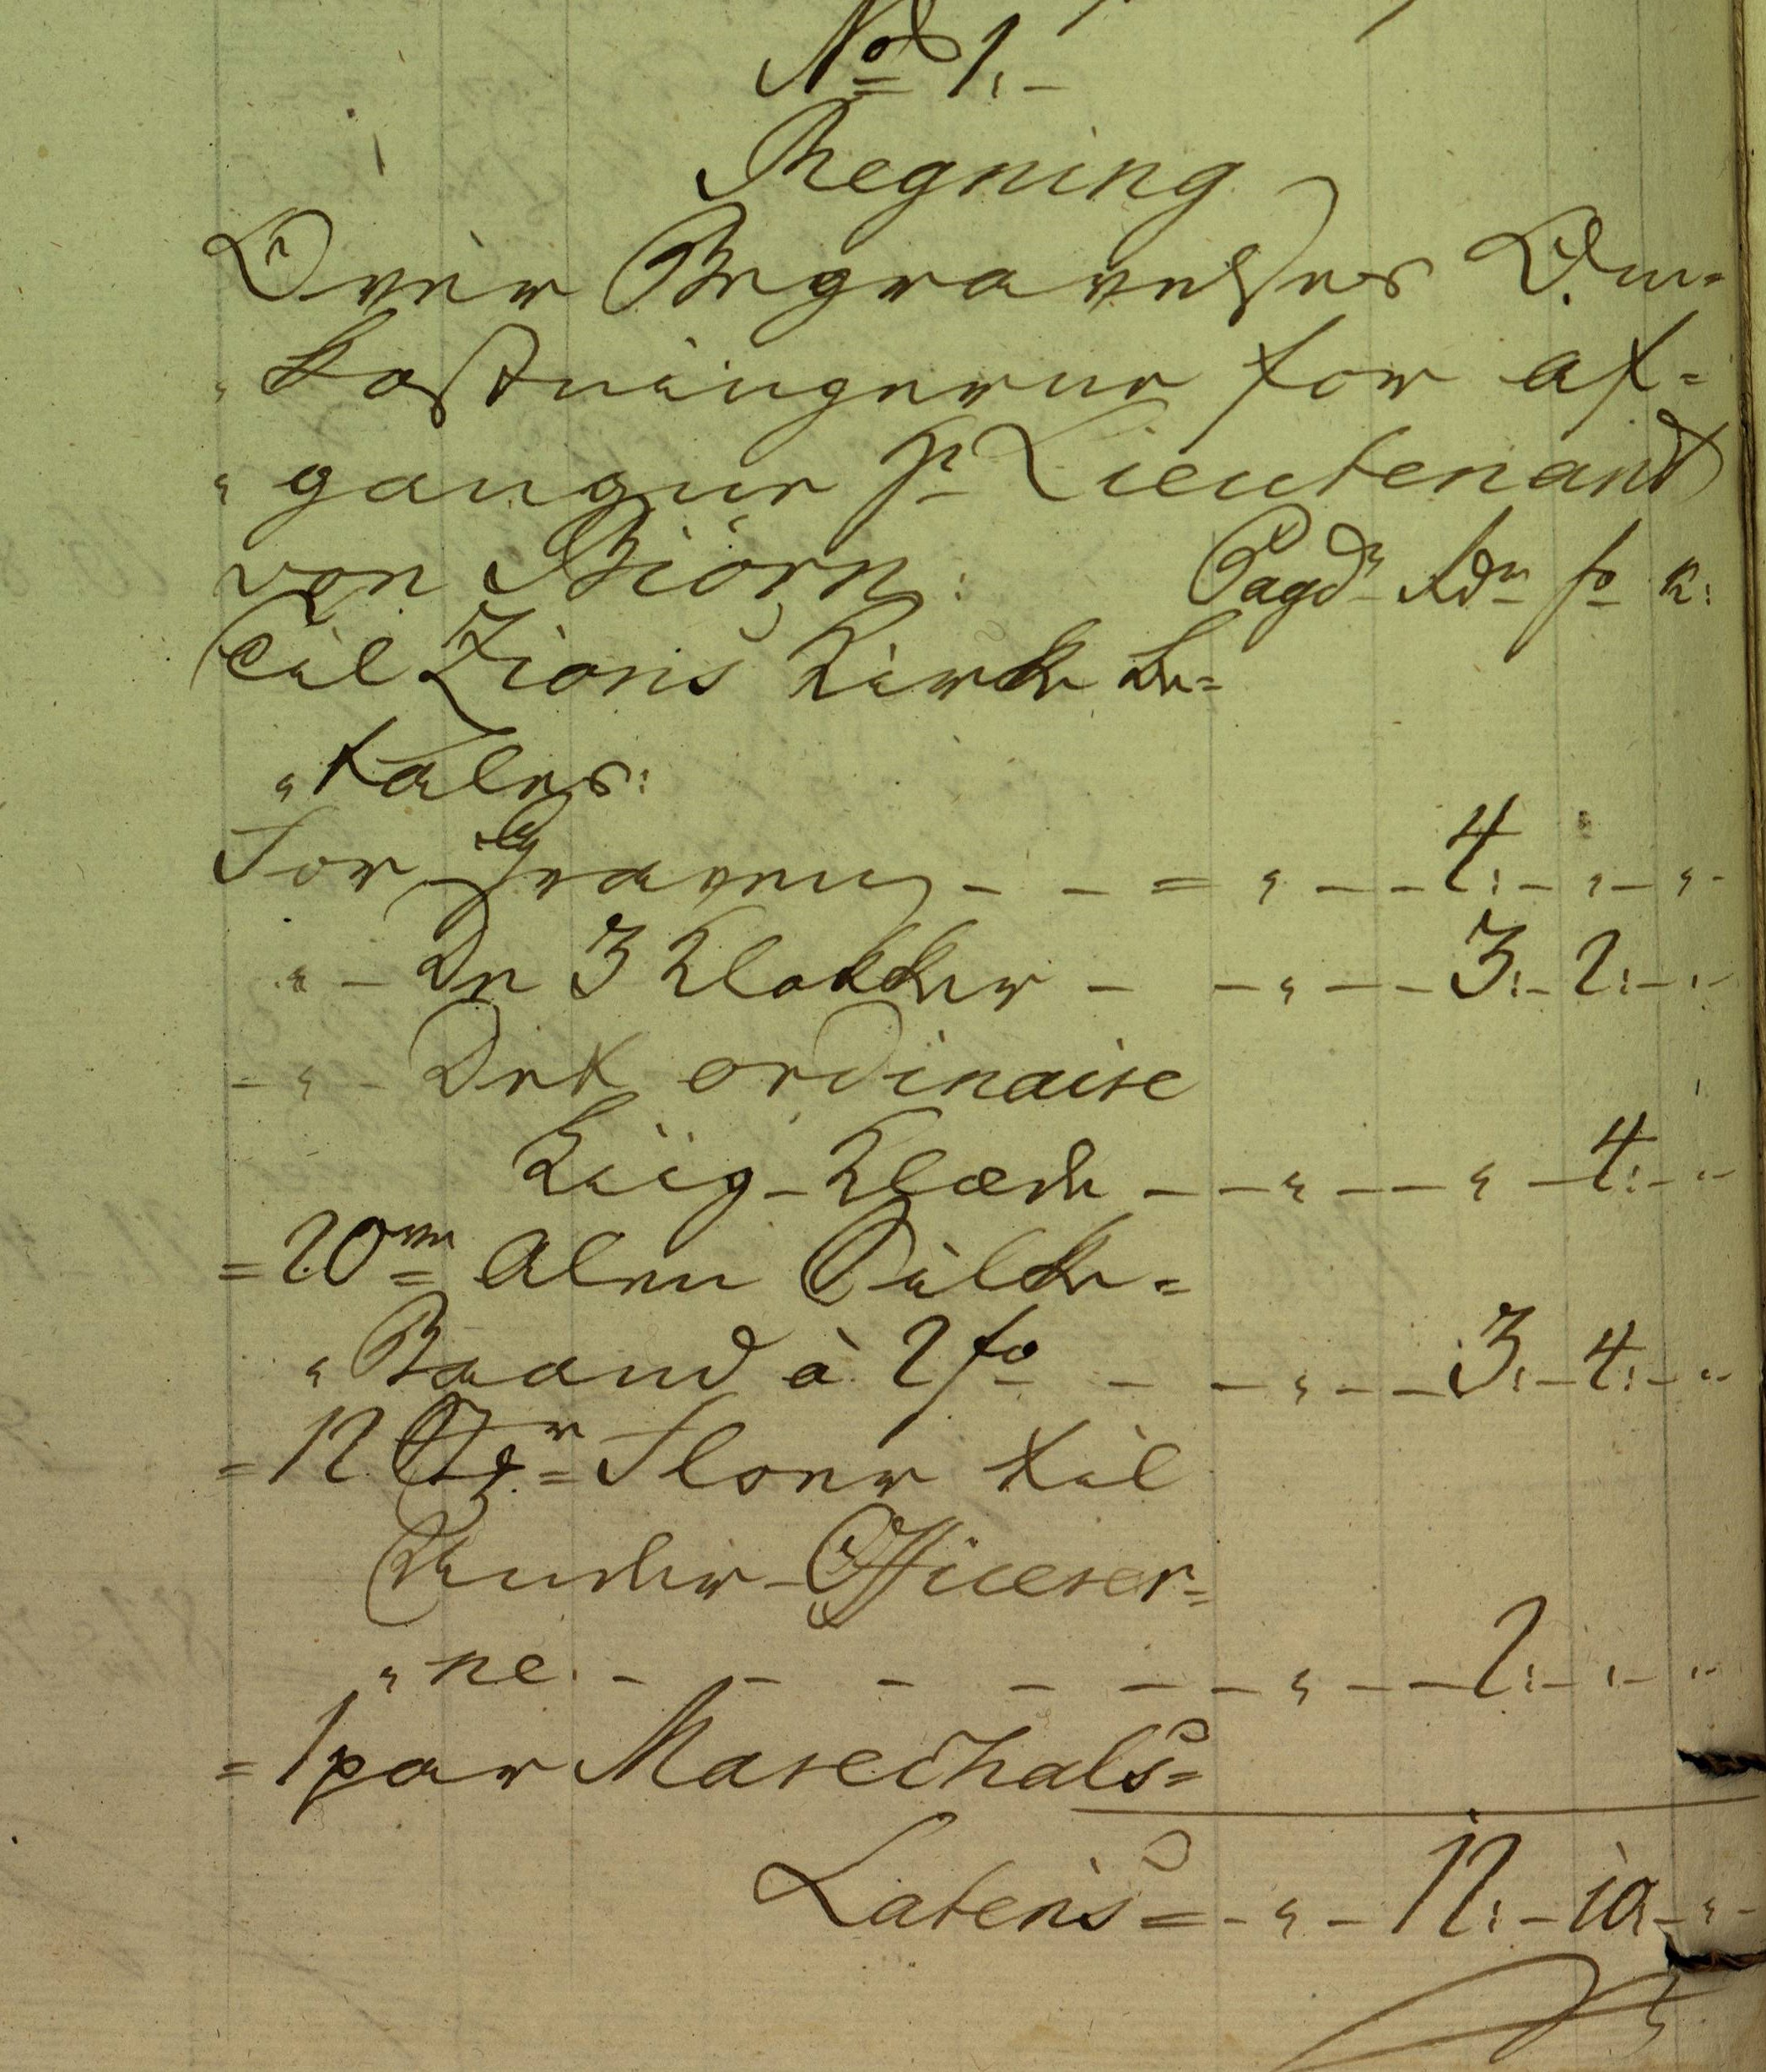 No 1.
Regning
Over Begravelses Om=
kostningerne for af=
gangne Hr Lieutenant
von Biörn: Pagdr Rdr fo k:
Til Zions Kirke be=
tales:
For Graven - - = " - - 4: - " - " -
" - De 3 Klokker - - " - - 3: - 2: - " -
- " - Det ordinaire
Liig-Klæde - - " - - " - 4: - " -
= 20ve Alen Silke=
Baand à 2 fo - - " - - 3: - 4: - " -
= 12 Styr = Floer til
Under-Officerer=
ne. - - - - - - " - - 2: - " - " -
= 1 par Marechals=
Lateris = - " - 12: - 10 - " -